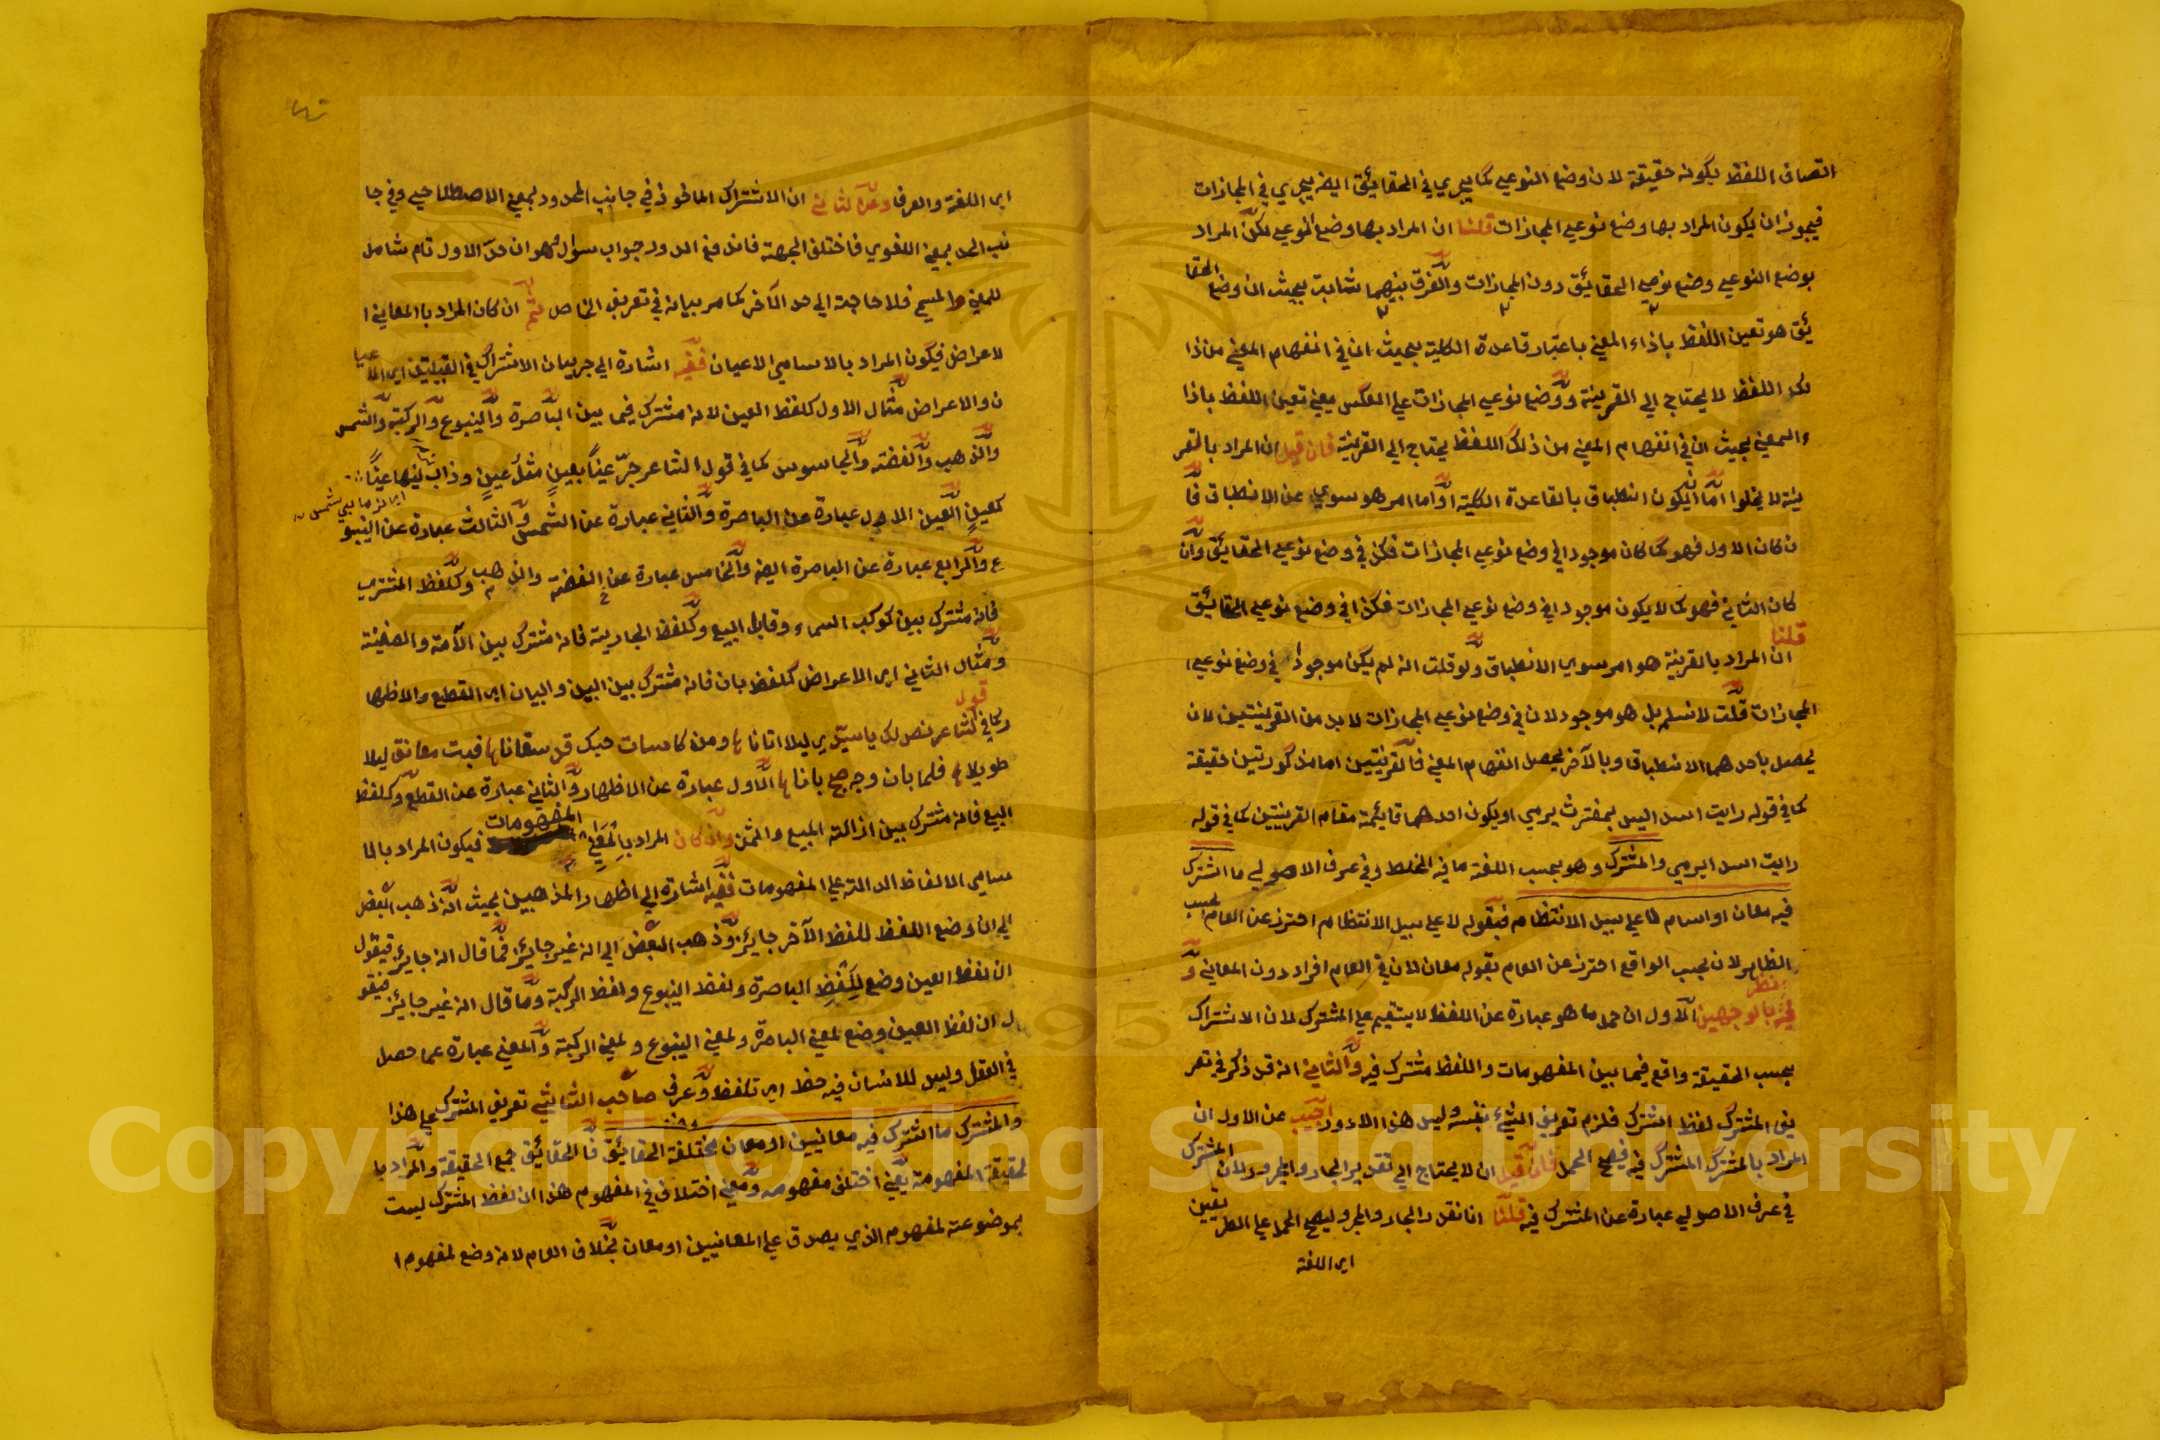 اتصاف اللفظ بكونه حقيقة لان وضع النوعي كما يجري في الحقايق ايضا يجري في المجازات
فيجوز ان يكون المراد بها وضع نوعي المجازات قلنا ان المراد بها وضع النوعي لكن المراد
بوضع النوعي وضع نوعي الحقايق دون المجازات والفرق بينهما ثابت بحيث ان وضع الحقا
يق هو تعين اللفظ باذاء المعنى باعتبار قاعدة الكلية بحيث ان في انفهام المعنى من ذا
لك اللفظ لا يحتاج الي القرينة ووضع نوعي المجازات علي العكس يعني تعين اللفظ باذا
ء المعنى بحيث ان في انفهام المعنى من ذلك اللفظ يحتاج الي القرينة فان قيل ان المراد بالقر
ينة لا يخلوا اما ان يكون انطباق بالقاعدة الكلية او اما امر هو سوي عن الانطباق فا
ن كان الاول فهو كما كان موجودا في وضع نوعي المجازات فكذا في وضع نوعي الحقايق وان
كان الثاني فهو كما لا يكون موجودا في وضع نوعي المجازات فكذا في وضع نوعي الحقايق
قلنا ان المراد بالقرينة هو امر سوي الانطباق ولو قلت انه لم يكن موجودا في وضع نوعي ا
لمجازات قلت لا نسلم بل هو موجود لان في وضع نوعي المجازات لا بد من القرينتين لان
يحصل باحدهما الانطباق وبالآخر يحصل انفهام المعنى فالقرينتين اما مذكورتين حقيقة
كما في قوله رايت اسد اليس بمفترث يرمي او يكون احدهما قايمة مقام القرينتين كما في قوله
رايت اسد ايرمي والمشترك وهو بحسب اللغة ما فيه الخلط وفي عرف الاصولي ما اشترك
فيه معان او اسام لا علي سبيل الانتظام فبقوله لا علي سبيل الانتظام احترز عن العام بحسب
الظاهر لان بحسب الواقع احترز عن العام بقوله معان لان في العام افراد دون المعاني و
فيه نظر بالوجهين الاول ان حمل ما هو عبارة عن اللفظ لا يستقيم علي المشترك لان الاشتراك
بحسب الحقيقة واقع فيما بين المفهومات واللفظ مشترك فيه والثاني انه قد ذكر في تعر
يف المشترك لفظ اشترك فلزم تعريف الشيء بنفسه وليس هذا الا دور اجيب عن الاول ان
المراد بالمشترك المشترك فيه فيصح الحمل فان قيل ان لا يحتاج الي تقدير الجار والمجرور لان المشترك
في عرف الاصولي عبارة عن المشترك فيه قلنا انا نقدر الجار والمجرور ليصح الحمل علي
اي اللغة
اي اللغة والعرف وعن الثاني ان الاشتراك الماخوذ في جانب المحدود بمعنى الاصطلاحي وفي جا
نب الحد بمعنى اللغوي فاختلف الجهة فاندفع الدور جواب سؤال هو ان حد الاول تام شامل
للمعنى فلا حاجة الي حد الآخر كما مر بيانه في تعريف الخاص ثم ان كان المراد بالمعاني ا
لاعراض فيكون المراد بالاسامي الاعيان ففيه اشارة الي جريان الاشتراك في القبيلتين اي الاعيا
ن والاعراض مثال الاول كلفظ العين لانه مشترك فيما بين الباصرة والينبوع والركبة والشمس
والذهب والفضة والجاسوس كما في قول الشاعر جر عينا بعين مثل عين
كعين العين الاول عبارة عن الباصرة والثاني عبارة عن الشمس والثالث عبارة عن الينبو
ع والرابع عبارة عن الباصرة ايضا والخامس عبارة عن الفضة والذهب وكلفظ المشتري
فانه مشترك بين كوكب السماء وقابل البيع وكلفظ الجارية فانه مشترك بين الآمة والسفينة
ومثال الثاني اي الاعراض كلفظ بان فانه مشترك بين البين والبيان اي القطع والاظها
ر كما في قول الشاعر ليلا اتانا ومن كاسات حبك قد سقانا فبت معانق ليلا
طويلا فلما بان وجه صبح بانا الاول عبارة عن الاظهار والثاني عبارة عن القطع وكلفظ
البيع فانه مشترك بين ازالة المبيع والثمن وان كان المراد بالمعنى المفهومات فيكون المراد بالا
سامي الالفاظ الدالة علي المفهومات ففيه اشارة الي اظهار المذهبين بحيث انه ذهب البعض
الي ان وضع اللفظ للفظ الآخر جايز وذهب البعض الي انه غير جايز فما قال انه جايز فيقول
ان لفظ العين وضع للفظ الباصرة ولفظ الينبوع ولفظ الركبة وما قال انه غير جايز فيقو
ل ان لفظ العين وضع لمعنى الباصرة ولمعنى الينبوع ولمعنى الركبة والمعنى عبارة عما حصل
في العقل وليس للانسان فيه حظ اي تلفظ وعرف صاحب الشاشي تعريف المشترك علي هذا
والمشترك ما اشترك فيه معانيين او معان مختلفة الحقايق فالحقايق جمع الحقيقة والمراد با
لحقيقة المفهومة يعني اختلف مفهومه ومعنى اختلاف في المفهوم هذا ان لفظ المشترك ليست
بموضوعة لمفهوم الذي يصدق علي المعانيين او معان بخلاف العام لانه وضع لمفهوم ا
Copyright © King Saud University